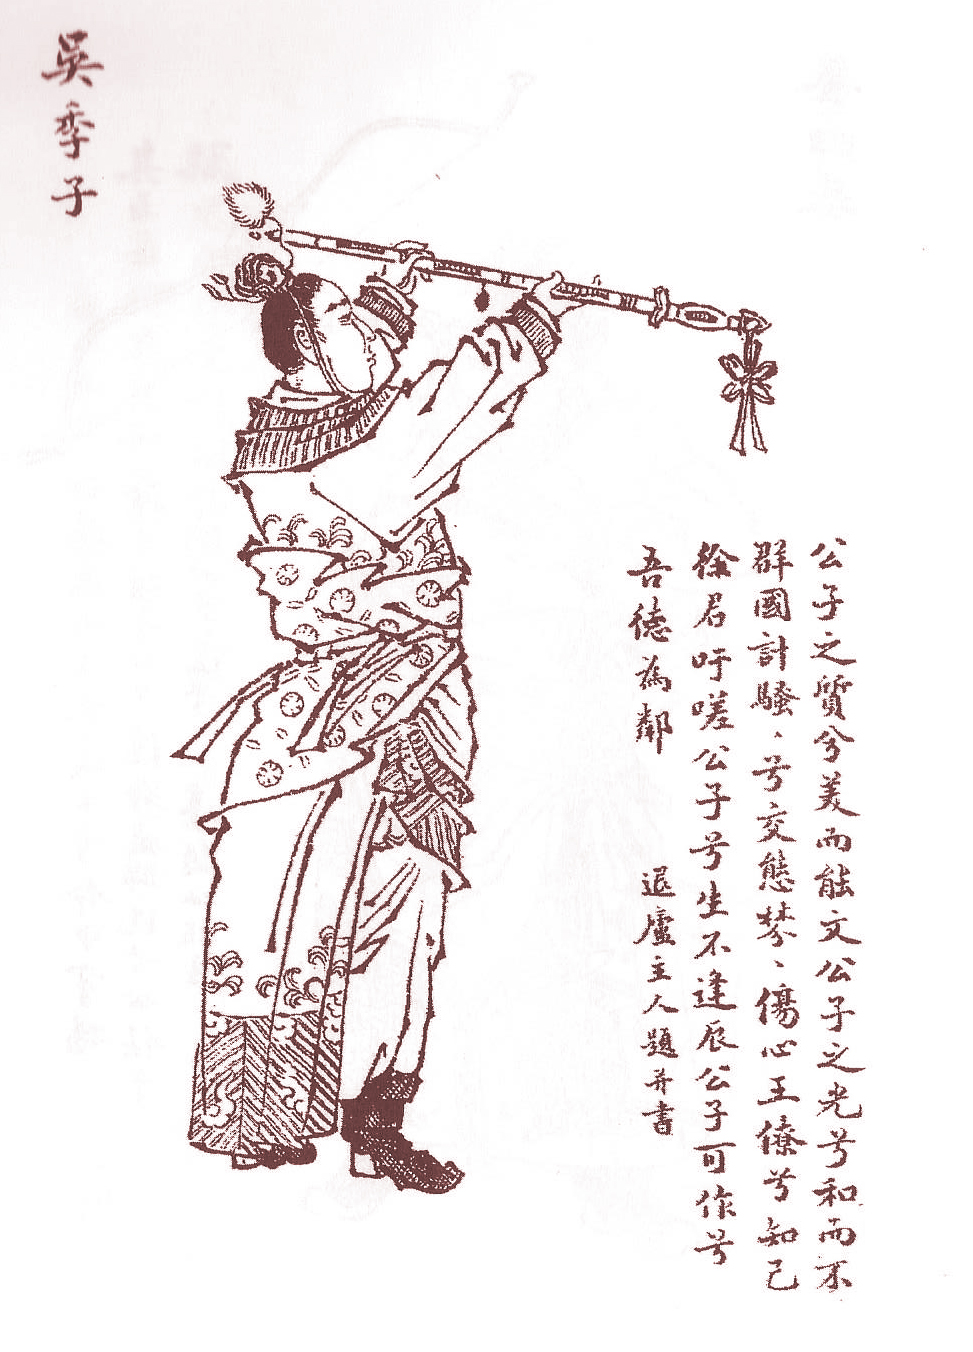 吳季子
公子之質兮美而能文公子之光兮和而不
群國計騷、兮交態棼、傷心王僚兮知己
徐君吁嗟公子兮生不逢辰公子可作兮
吾德為鄰
退廬主人題并書